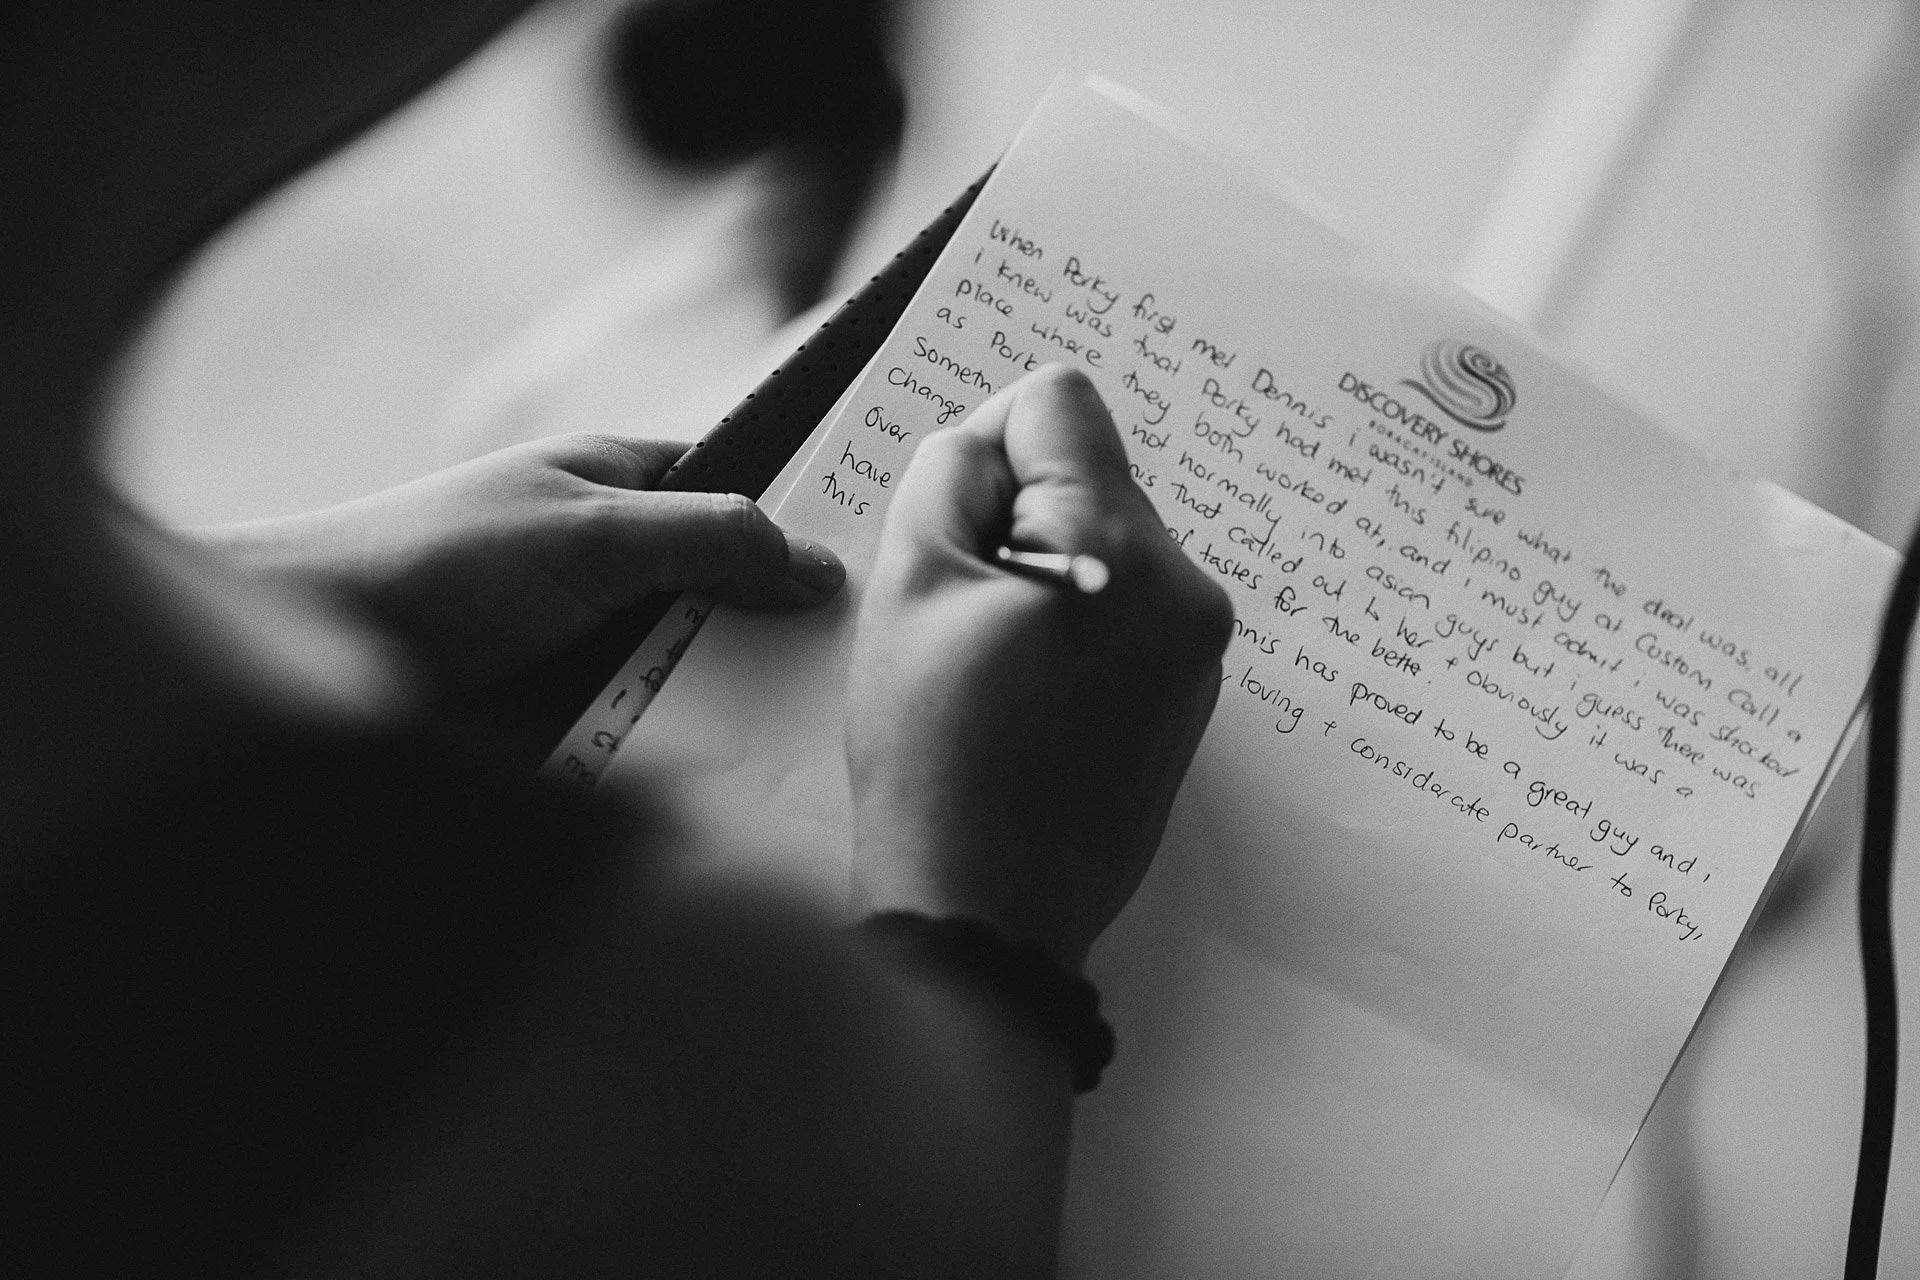 DISCOVERY SHORES
BORACAY ISLAND
When Porky first met Dennis i wasn't sure what the deal was, all
i knew was that Porky had met this filipino guy at Custom Call a
place where they both worked at, and i must admit i was shocked
as Pork not normally into asian guys but i guess there was
Someth nis that called out to her + obviously it was a
Change of tastes for the better.
Over nnis has proved to be a great guy and i
have loving + considerate partner to Porky,
this